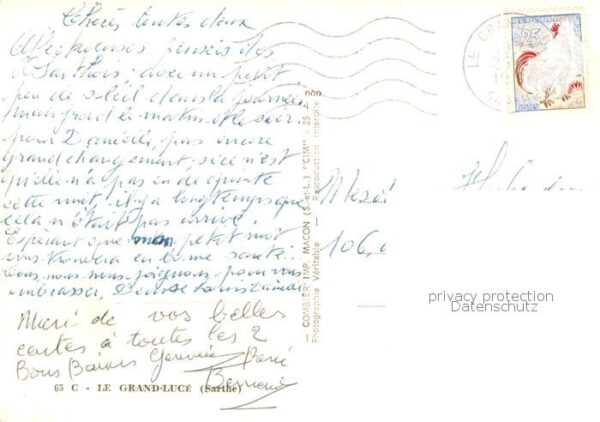 Chères toutes deux
Affectueuses pensées des
Sarthois, avec un petit
peu de soleil dans la journée
mais froid le matin et le soir.
pour Danielle, pas encore
grand changement, si ce n'est
qu'elle n'a pas eu de
cette nuit, il y a longtemps que
cela n'était pas arrivé.
Espérant que mon petit mot
vous trouvera en bonne santé.
tous, nous nous joignons pour vous
embrasser. Denise
Merci de vos belles
cartes à toutes les 2
Bons Baisers Geneviève René
Bernard
65 C - LE GRAND-LUCÉ (Sarthe)
COMBIER IMP. MACON (S.-et-L.) "CIM"
Photographie Véritable - Reproduction interdite
LE GRA
0,25
106,
privacy protection
Datenschutz